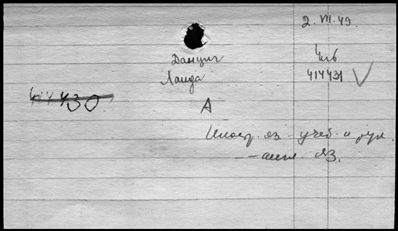 2. VII. 49.
Данциг
Ланда
4 кб
414431
414430
А
Иностр. яз. учеб. и рук.
— англ. яз.